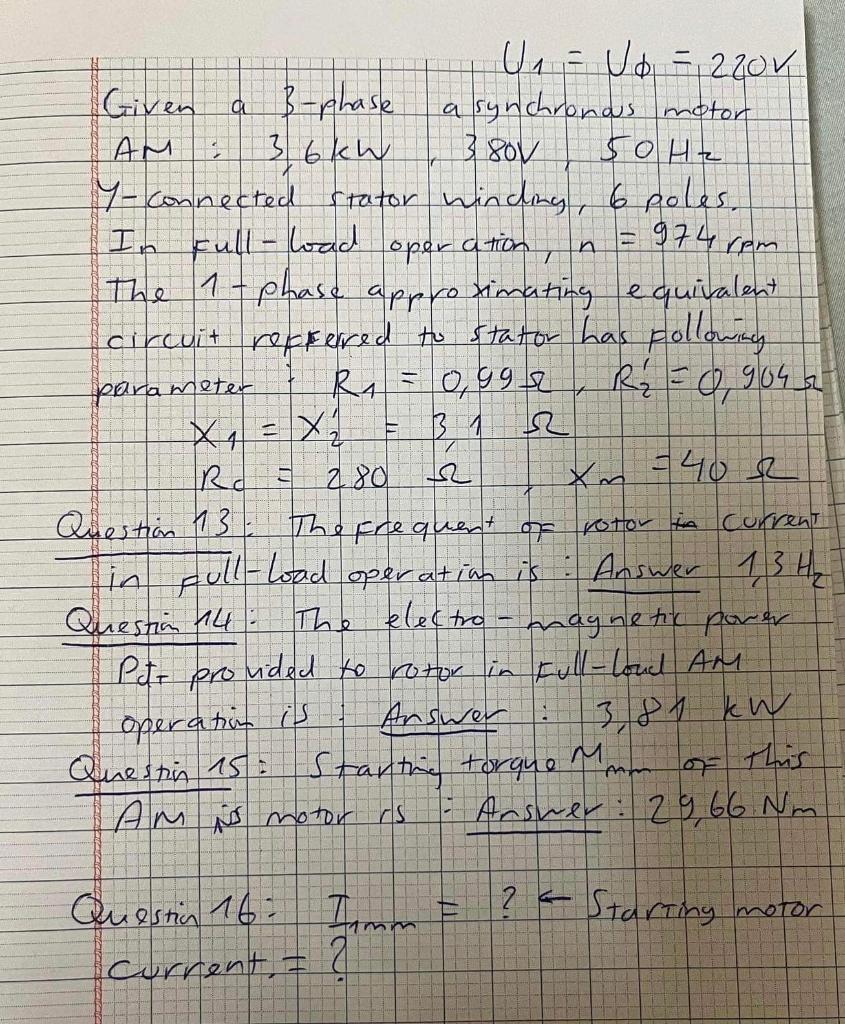 U1 = UΦ = 220V
Given a 3-phase asynchronous motor
AM : 3,6 kW , 380V , 50 Hz
Y-connected stator winding, 6 poles.
In Full-load operation, n = 974 rpm
The 1-phase approximating equivalent
circuit referred to stator has following
parameter : R1 = 0,99 Ω , R2' = 0,904 Ω
X1 = X2' = 3,1 Ω
Rc = 280 Ω , Xm = 40 Ω
Question 13 : The frequent of rotor in current
in full-load operation is : Answer 1,3 Hz
Question 14 : The electro-magnetic power
Pdt provided to rotor in Full-load AM
operation is : Answer : 3,81 kW
Question 15 : Starting torque Mmm of this
AM is motor is : Answer : 29,66 Nm
Question 16 : I1mm = ? ← Starting motor
current = ?